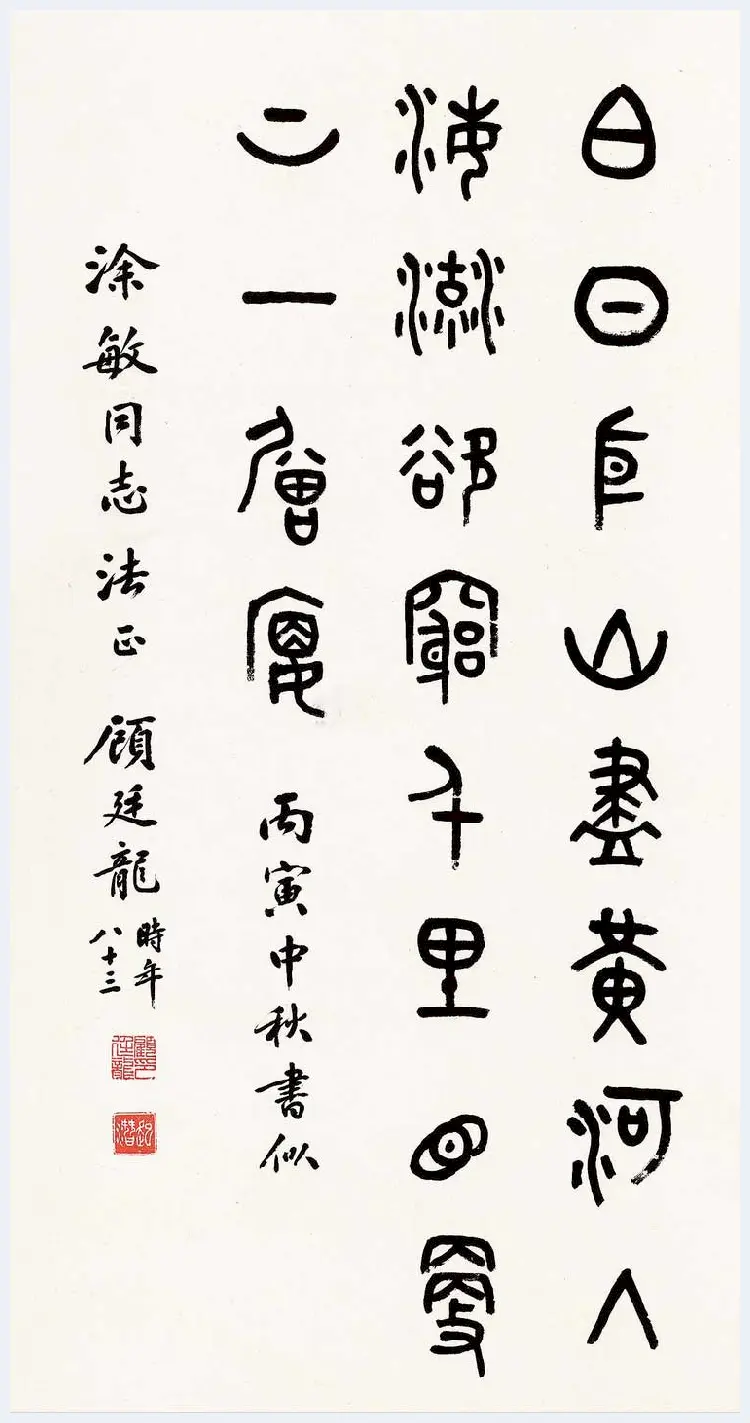 白日依山盡黃河入
海流欲窮千里目更
上一層樓 丙寅中秋書似
涂敏同志法正 顧廷龍 時年八十三
顧廷龍印
起潛